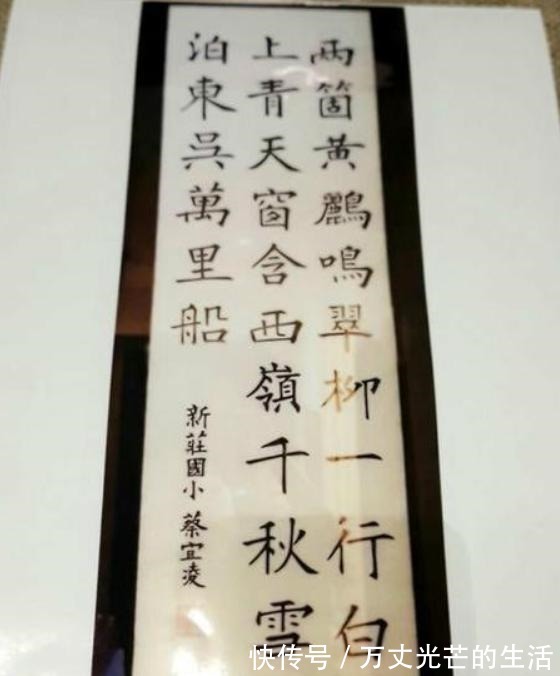 兩箇黃鸝鳴翠柳一行白
上青天窗含西嶺千秋雪
泊東吳萬里船
新莊國小 蔡宜淩
快传号 / 万丈光芒的生活